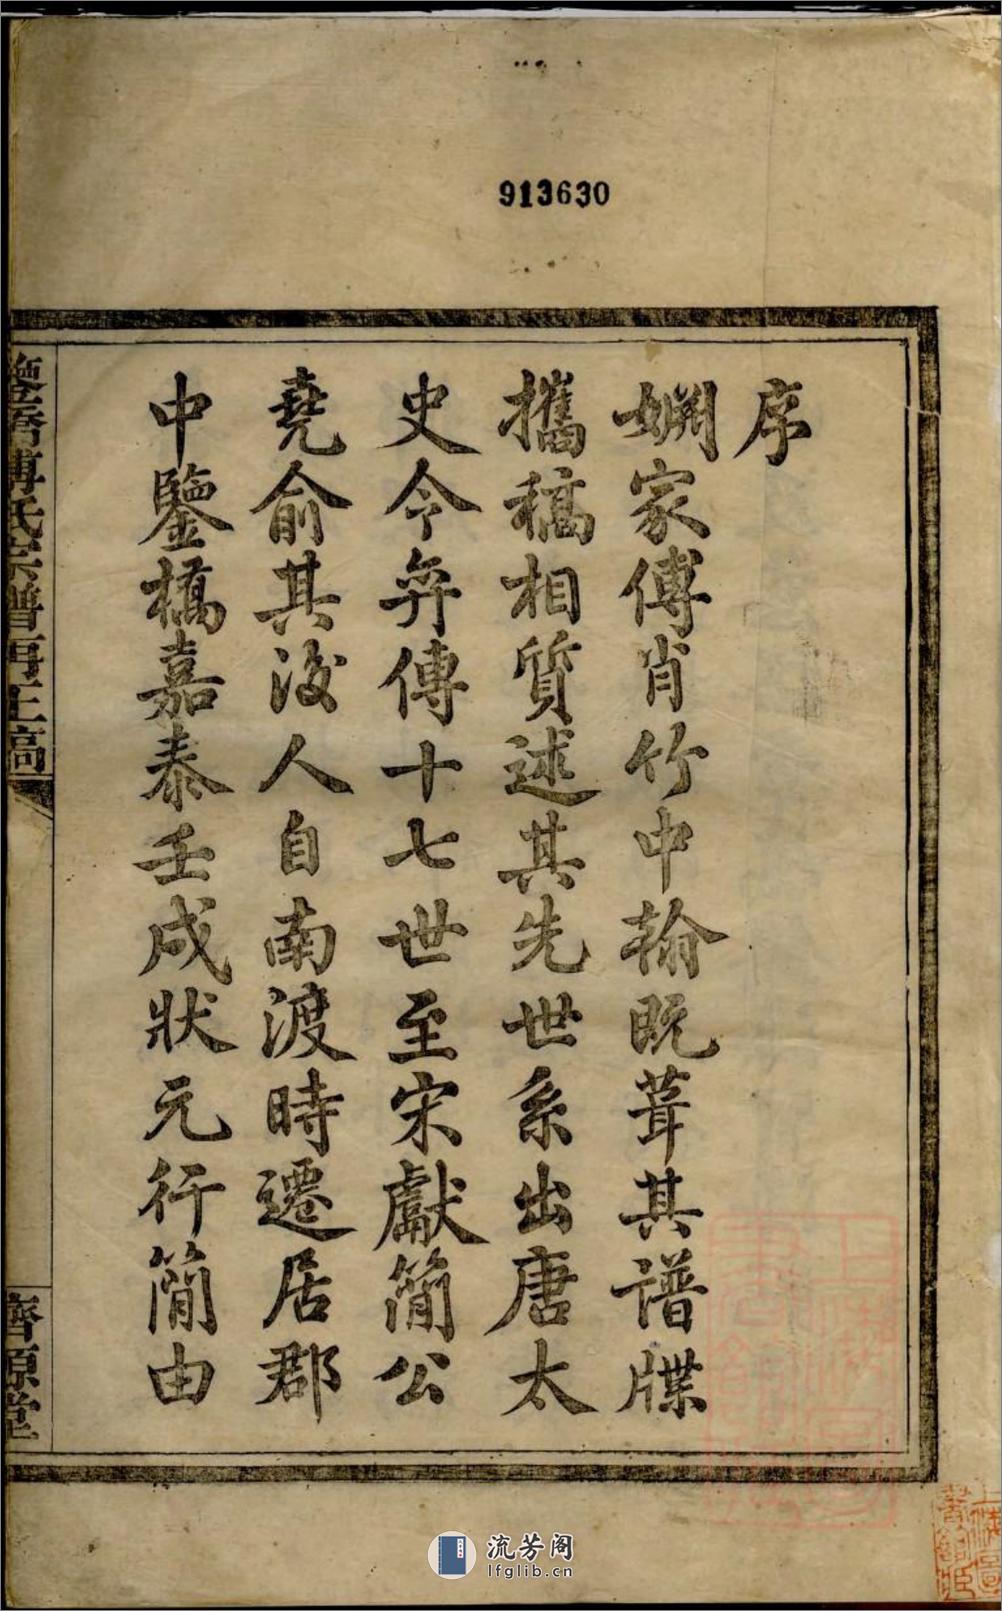 913630
序
姻家傅肖竹中翰既葺其譜牒
攜稿相質述其先世系出唐太
史令弈傳十七世至宋獻簡公
堯俞其後人自南渡時遷居郡
中鑒橋嘉泰壬戌狀元行簡由
橋傅氏宗譜
齊源堂
流芳阁
lfglib.cn